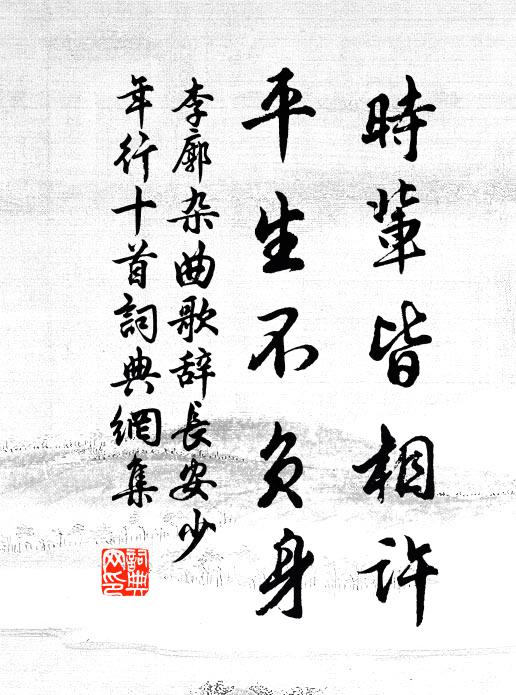 時輩皆相許
平生不負身
李廓杂曲歌辞長安少
年行十首詞典網集
詞典